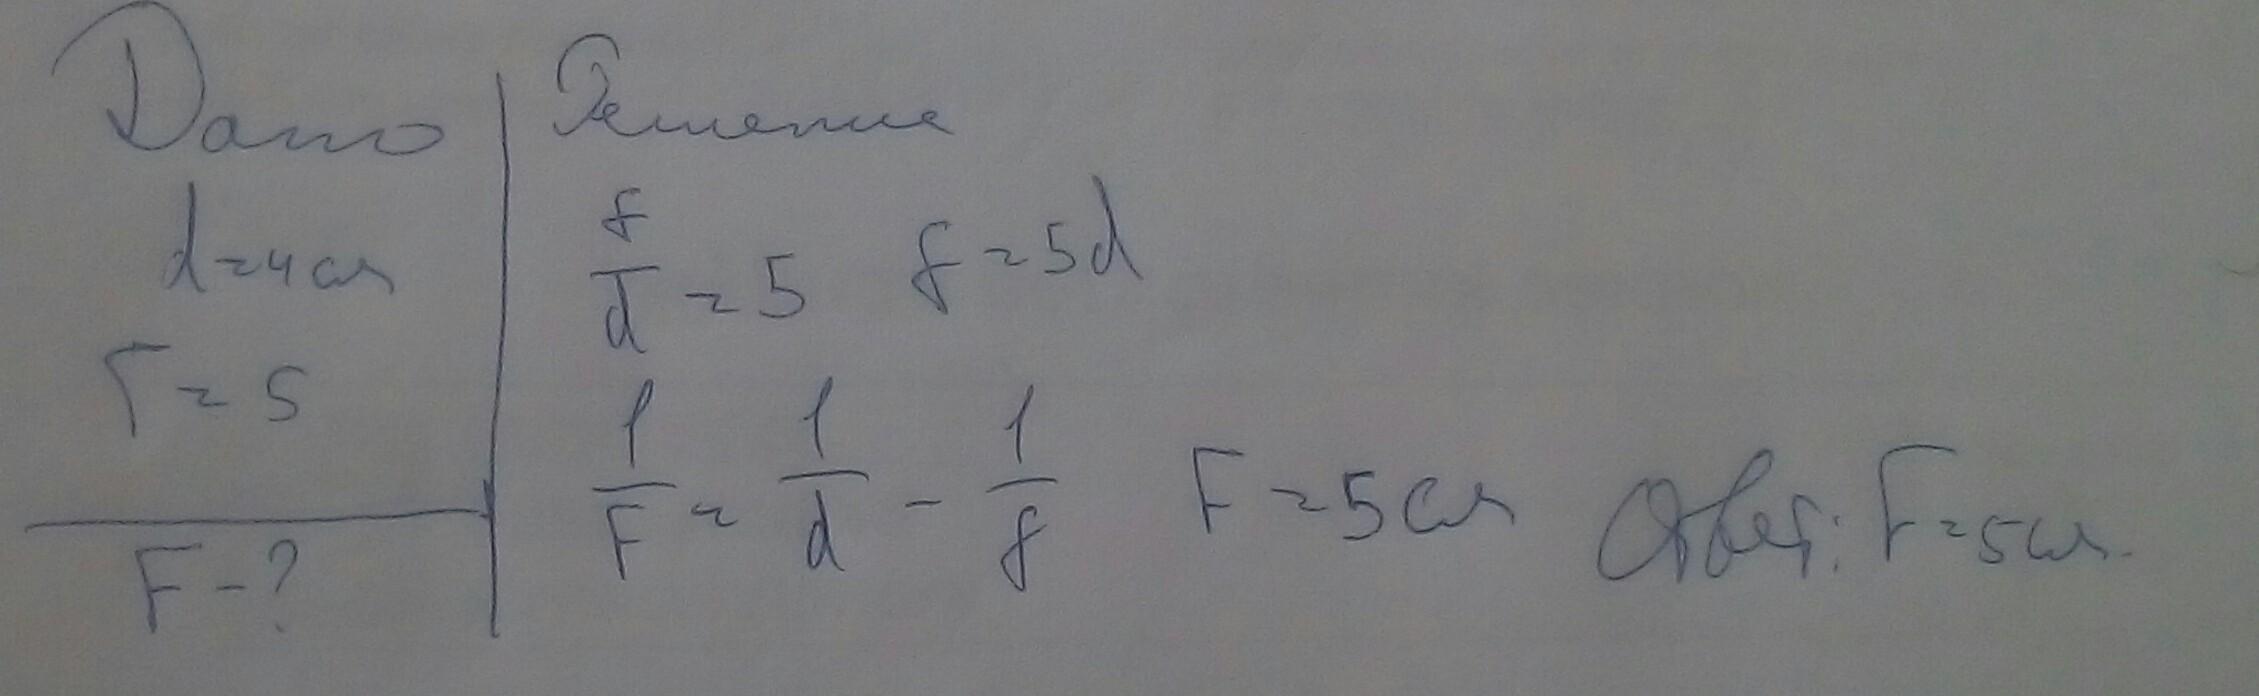 Дано
d=4см
Г=5
F-?
Решение
f/d=5 f=5d
1/F=1/d-1/f F=5см Ответ: F=5см.